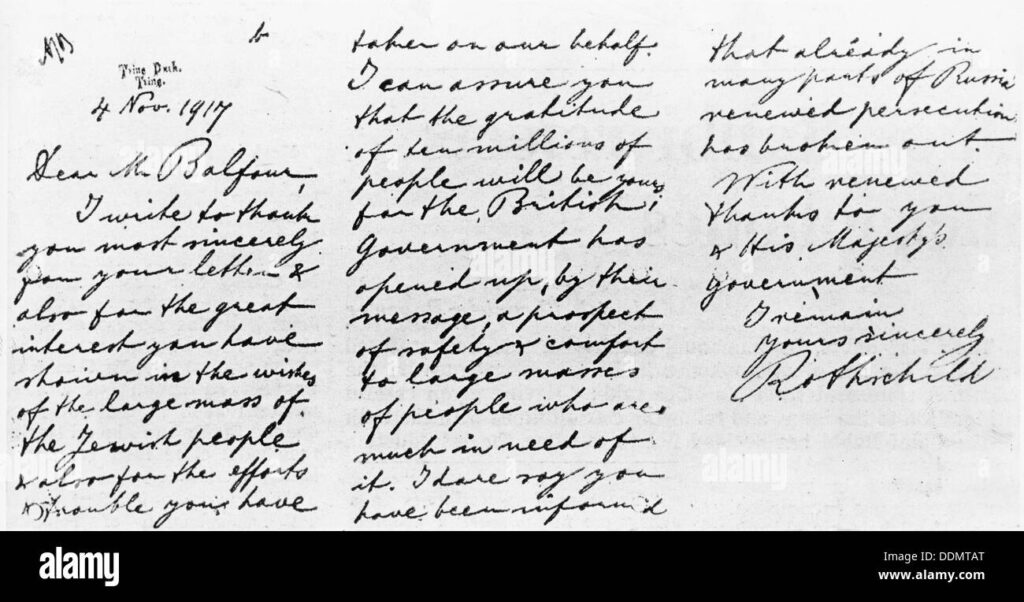 AJB
b
Tring Park.
Tring.
4 Nov. 1917
Dear Mr Balfour,
I write to thank
you most sincerely
for your letter &
also for the great
interest you have
shown in the wishes
of the large mass of
the Jewish people
& also for the efforts
& trouble you have
taken on our behalf.
I can assure you
that the gratitude
of ten millions of
people will be yours
for the British
Government has
opened up, by their
message, a prospect
of safety & comfort
to large masses
of people who are
much in need of
it. I dare say you
have been informed
that already in
many parts of Russia
renewed persecution
has broken out.
With renewed
thanks to you
& His Majesty's
Government
I remain
yours sincerely
Rothschild
alamy
Image ID: DDMTAT
www.alamy.com